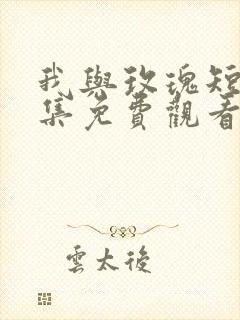 我與玫瑰短
集免費觀看
雲太後